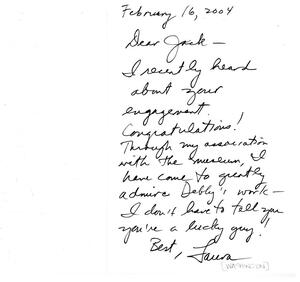 February 16, 2004
Dear Jack —
I recently heard
about your
engagement.
Congratulations!
Through my association
with the museum, I
have come to greatly
admire Debby's work —
I don't have to tell you
you're a lucky guy!
Best, Laura